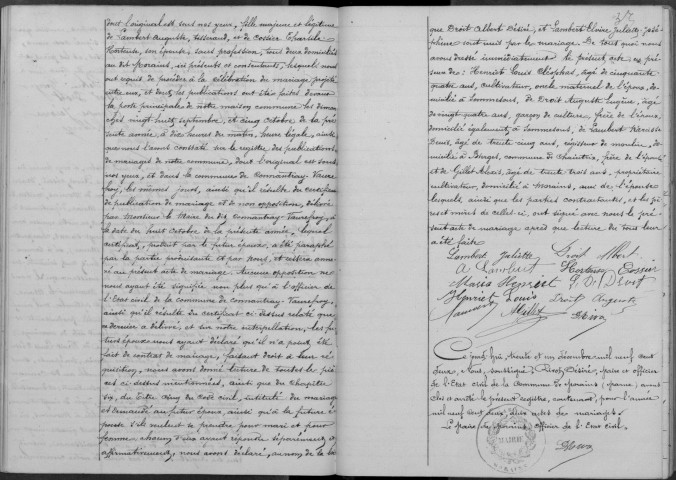 dont l'original est sous nos yeux, fille majeure et légitime
de Lambert Auguste, tisserand, et de Cossin Charlotte
Hortense, son épouse, sans profession, tous deux domiciliés
au dit Morains, ici présents et consentants, lesquels nous
ont requis de procéder à la célébration du mariage projeté
entre eux, et dont les publications ont été faites devant
la porte principale de notre maison commune les diman-
ches vingt-huit septembre, et cinq octobre de la pré-
sente année, à dix heures du matin, heure légale, ainsi
que nous l'avons constaté sur le registre des publications
de mariages de notre commune, dont l'original est sous
nos yeux, et dans la commune de Connantray-Vaure-
froy, les mêmes jours, ainsi qu'il résulte du certificat
de publication de mariage et de non opposition, délivré
par Monsieur le Maire du dit Connantray-Vaurefroy, à
la date du huit octobre de la présente année, lequel
certificat, produit par le futur époux, a été paraphé
par la partie produisante et par nous, et restera anne-
xé au présent acte de mariage. Aucune opposition ne
nous ayant été signifiée non plus qu'à l'officier de
l'Etat civil de la commune de Connantray-Vaurefroy,
ainsi qu'il résulte du certificat ci-dessus relaté que
ce dernier a délivré, et sur notre interpellation, les fu-
turs époux nous ayant déclaré qu'il n'a point été
fait de contrat de mariage, faisant droit à leur ré-
quisition, nous avons donné lecture de toutes les piè-
ces ci-dessus mentionnées, ainsi que du chapitre
six, du titre cinq du code civil, intitulé du mariage
et demandé au futur époux, ainsi qu'à la future é-
pouse s'ils veulent se prendre pour mari et pour
femme chacun d'eux ayant répondu séparément et
affirmativement, nous avons déclaré, au nom de la loi
que Droit Albert Désiré, et Lambert Elvire Juliette José-
phine sont unis par le mariage. De tout quoi nous
avons dressé immédiatement le présent acte en pré-
sence de: Henriet Louis Cléophas, âgé de cinquante
quatre ans, cultivateur, oncle maternel de l'époux, do-
micilié à Sommesous, de Droit Auguste Eugène, âgé
de vingt quatre ans, garçon de culture, frère de l'époux,
domicilié également à Sommesous, de Lambert Narcisse
Denis, âgé de trente cinq ans, régisseur de moulin, do-
micilié à Berges, commune de Chaintrix, frère de l'épouse
et de Gillet Alexis, âgé de trente trois ans, propriétaire
cultivateur, domicilié à Morains, ami de l'épouse
lesquels ainsi que les parties contractantes, et les pè-
res et mères de celles-ci, ont signé avec nous le pré-
sent acte de mariage après que lecture du tout leur
a été faite
Lambert Juliette Droit Albert
A Lambert Hortense Cossin
Maria Henriet Droit
Henriet Louis Droit Auguste
Lambert
Ce jourd'hui, trente et un décembre mil neuf cent
deux, Nous, soussigné, Désiré, Maire et officier
de l'Etat civil de la commune de Morains (Marne) avons
clos et arrêté le présent registre, contenant, pour l'année
mil neuf cent deux, deux actes de mariages.
Le Maire de Morains officier de l'Etat civil.
MAIRIE